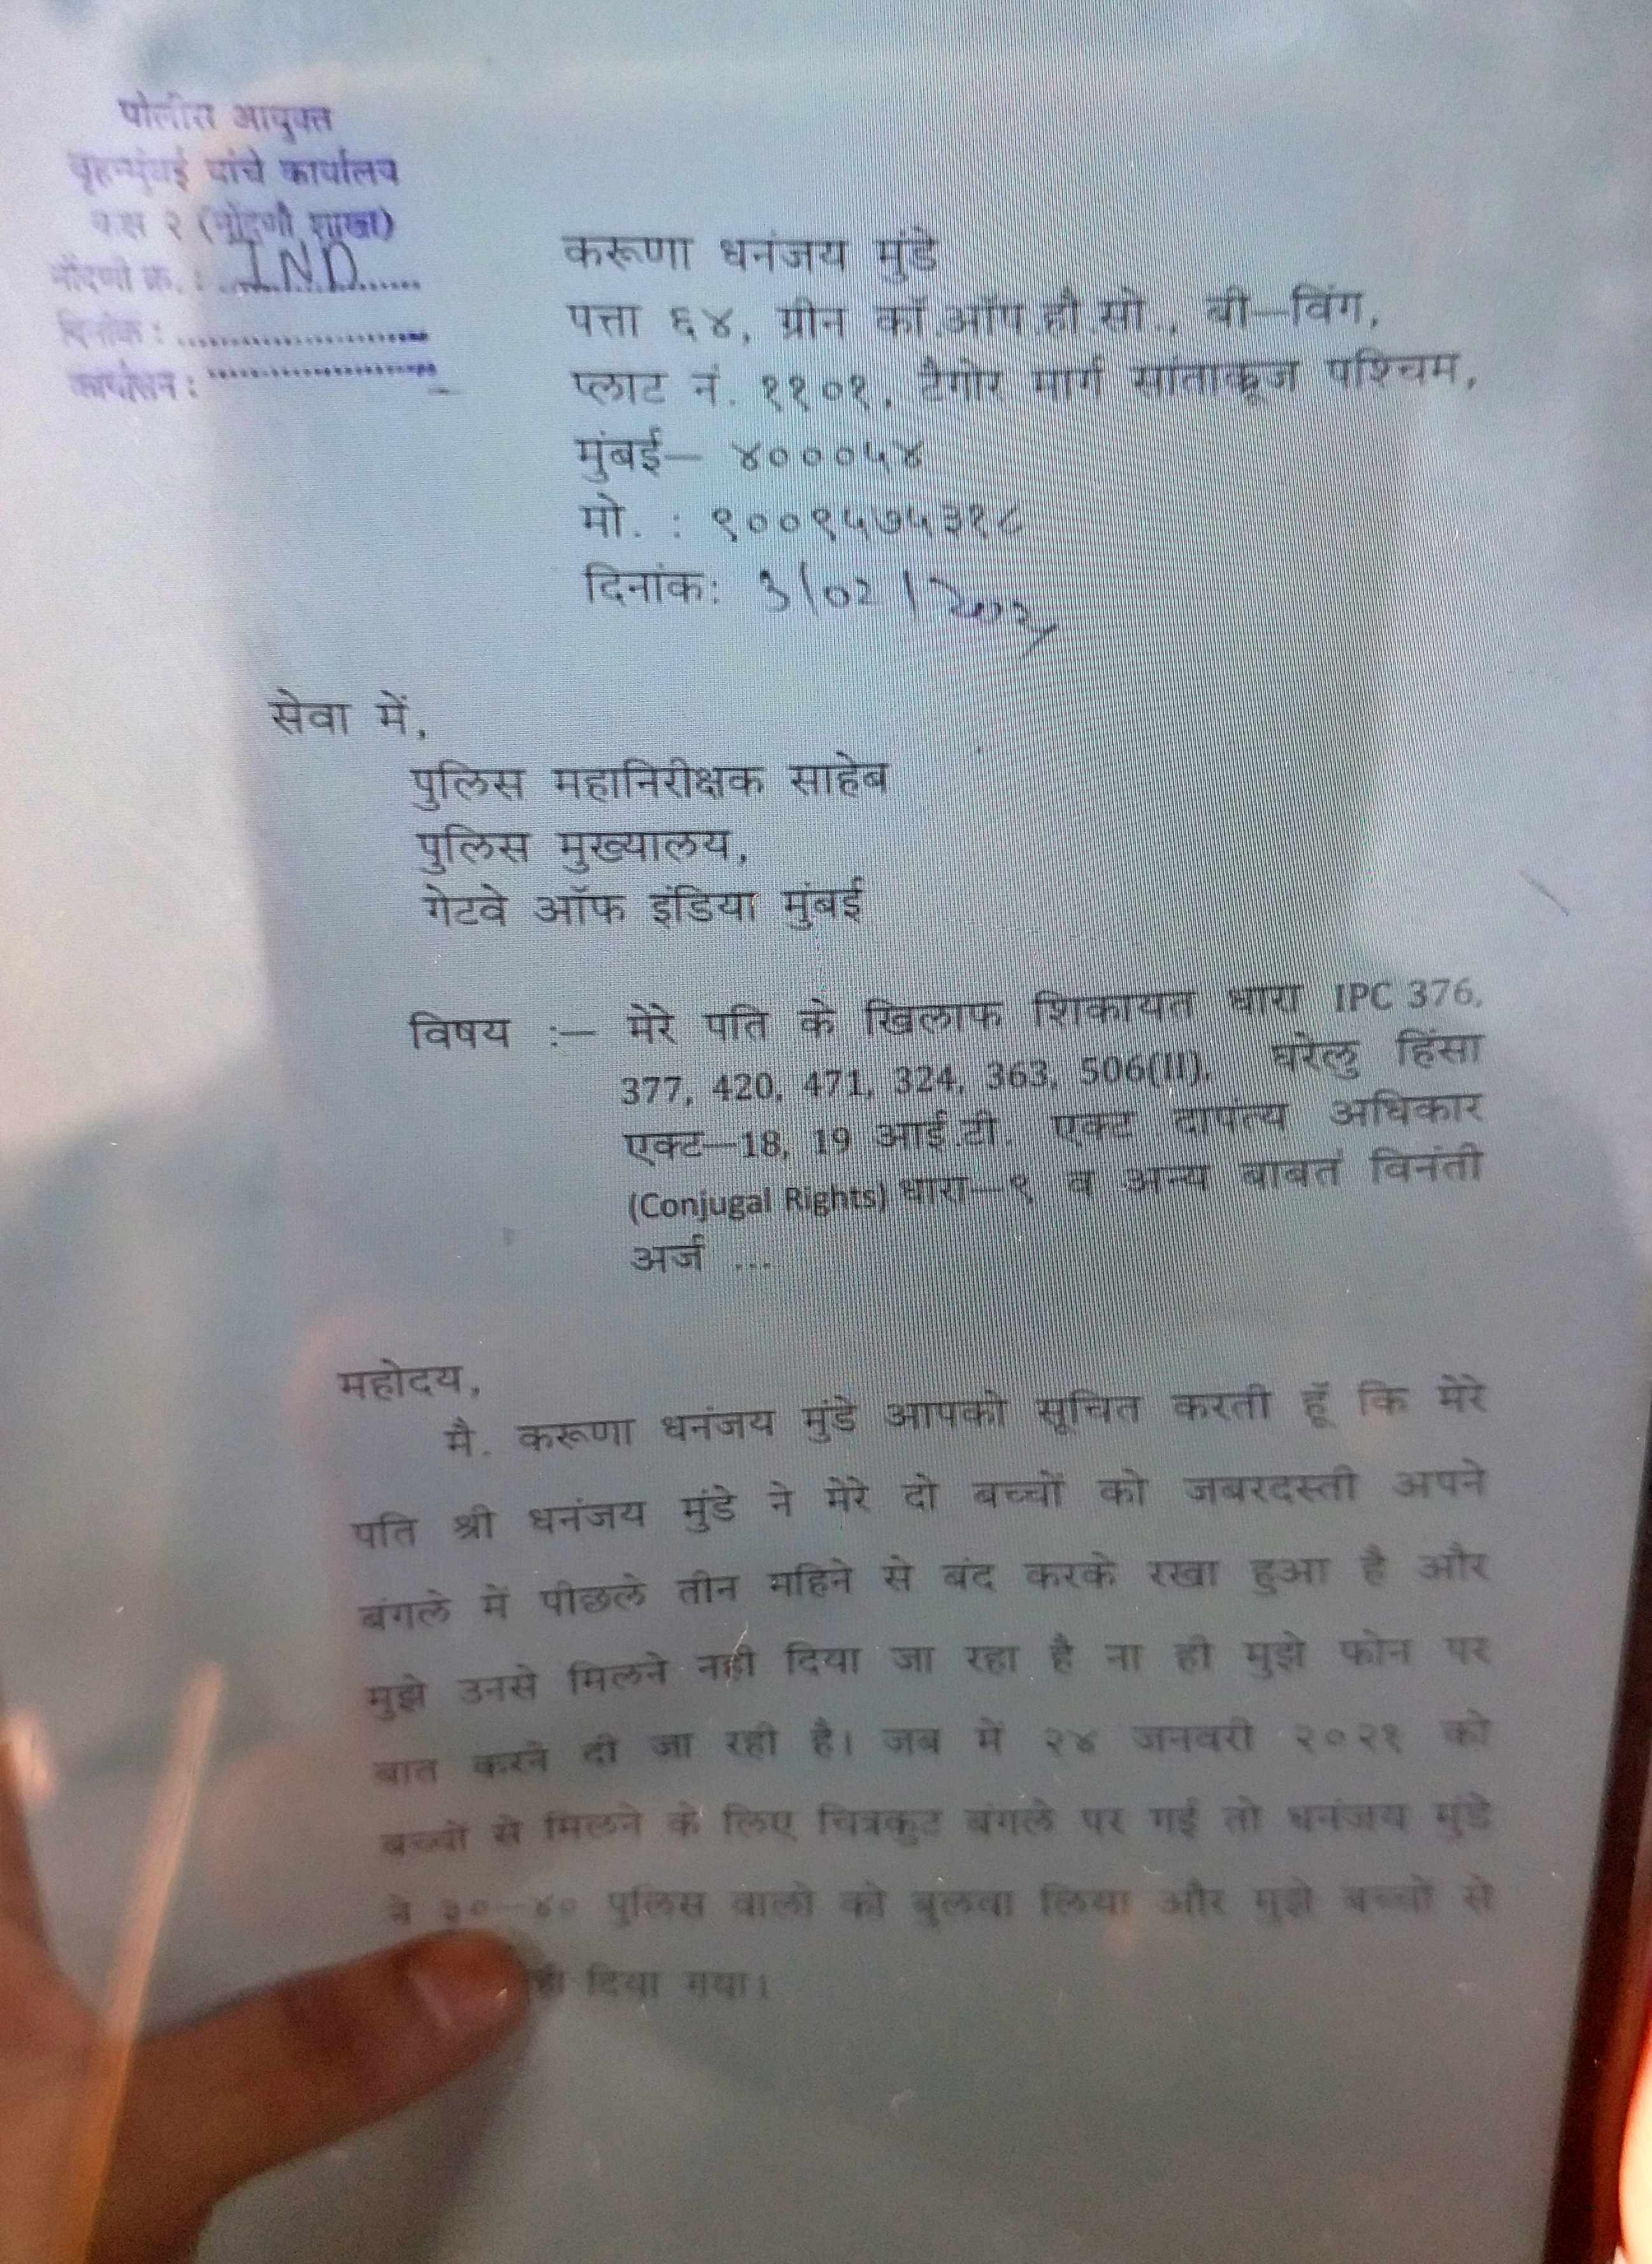 पोलीस आयुक्त
बृहन्मुंबई यांचे कार्यालय
कक्ष २ (नोंदणी शाखा)
नोंदणी क्र. : IND
दिनांक :
कार्यासन :
करूणा धनंजय मुंडे
पत्ता ६४, ग्रीन कॉ.ऑप.हौ.सो., बी—विंग,
प्लाट नं. ११०१, टैगोर मार्ग सांताक्रूज पश्चिम,
मुंबई— ४०००५४
मो. : ९००९५७५३१८
दिनांक: 3/02/
सेवा में,
पुलिस महानिरीक्षक साहेब
पुलिस मुख्यालय,
गेटवे ऑफ इंडिया मुंबई
विषय :— मेरे पति के खिलाफ शिकायत धारा IPC 376,
377, 420, 471, 324, 363, 506(II), घरेलु हिंसा
एक्ट—18, 19 आई.टी. एक्ट दापंत्य अधिकार
(Conjugal Rights) धारा—९ व अन्य बाबत विनंती
अर्ज ...
महोदय,
मै. करूणा धनंजय मुंडे आपको सूचित करती हूँ कि मेरे
पति श्री धनंजय मुंडे ने मेरे दो बच्चों को जबरदस्ती अपने
बंगले में पीछले तीन महिने से बंद करके रखा हुआ है और
मुझे उनसे मिलने नही दिया जा रहा है ना ही मुझे फोन पर
बात करने दी जा रही है। जब में २४ जनवरी २०२१ को
बच्चों से मिलने के लिए चित्रकुट बंगले पर गई तो धनंजय मुंडे
ने ३०—४० पुलिस वालो को बुलवा लिया और मुझे बच्चों से
दिया गया।